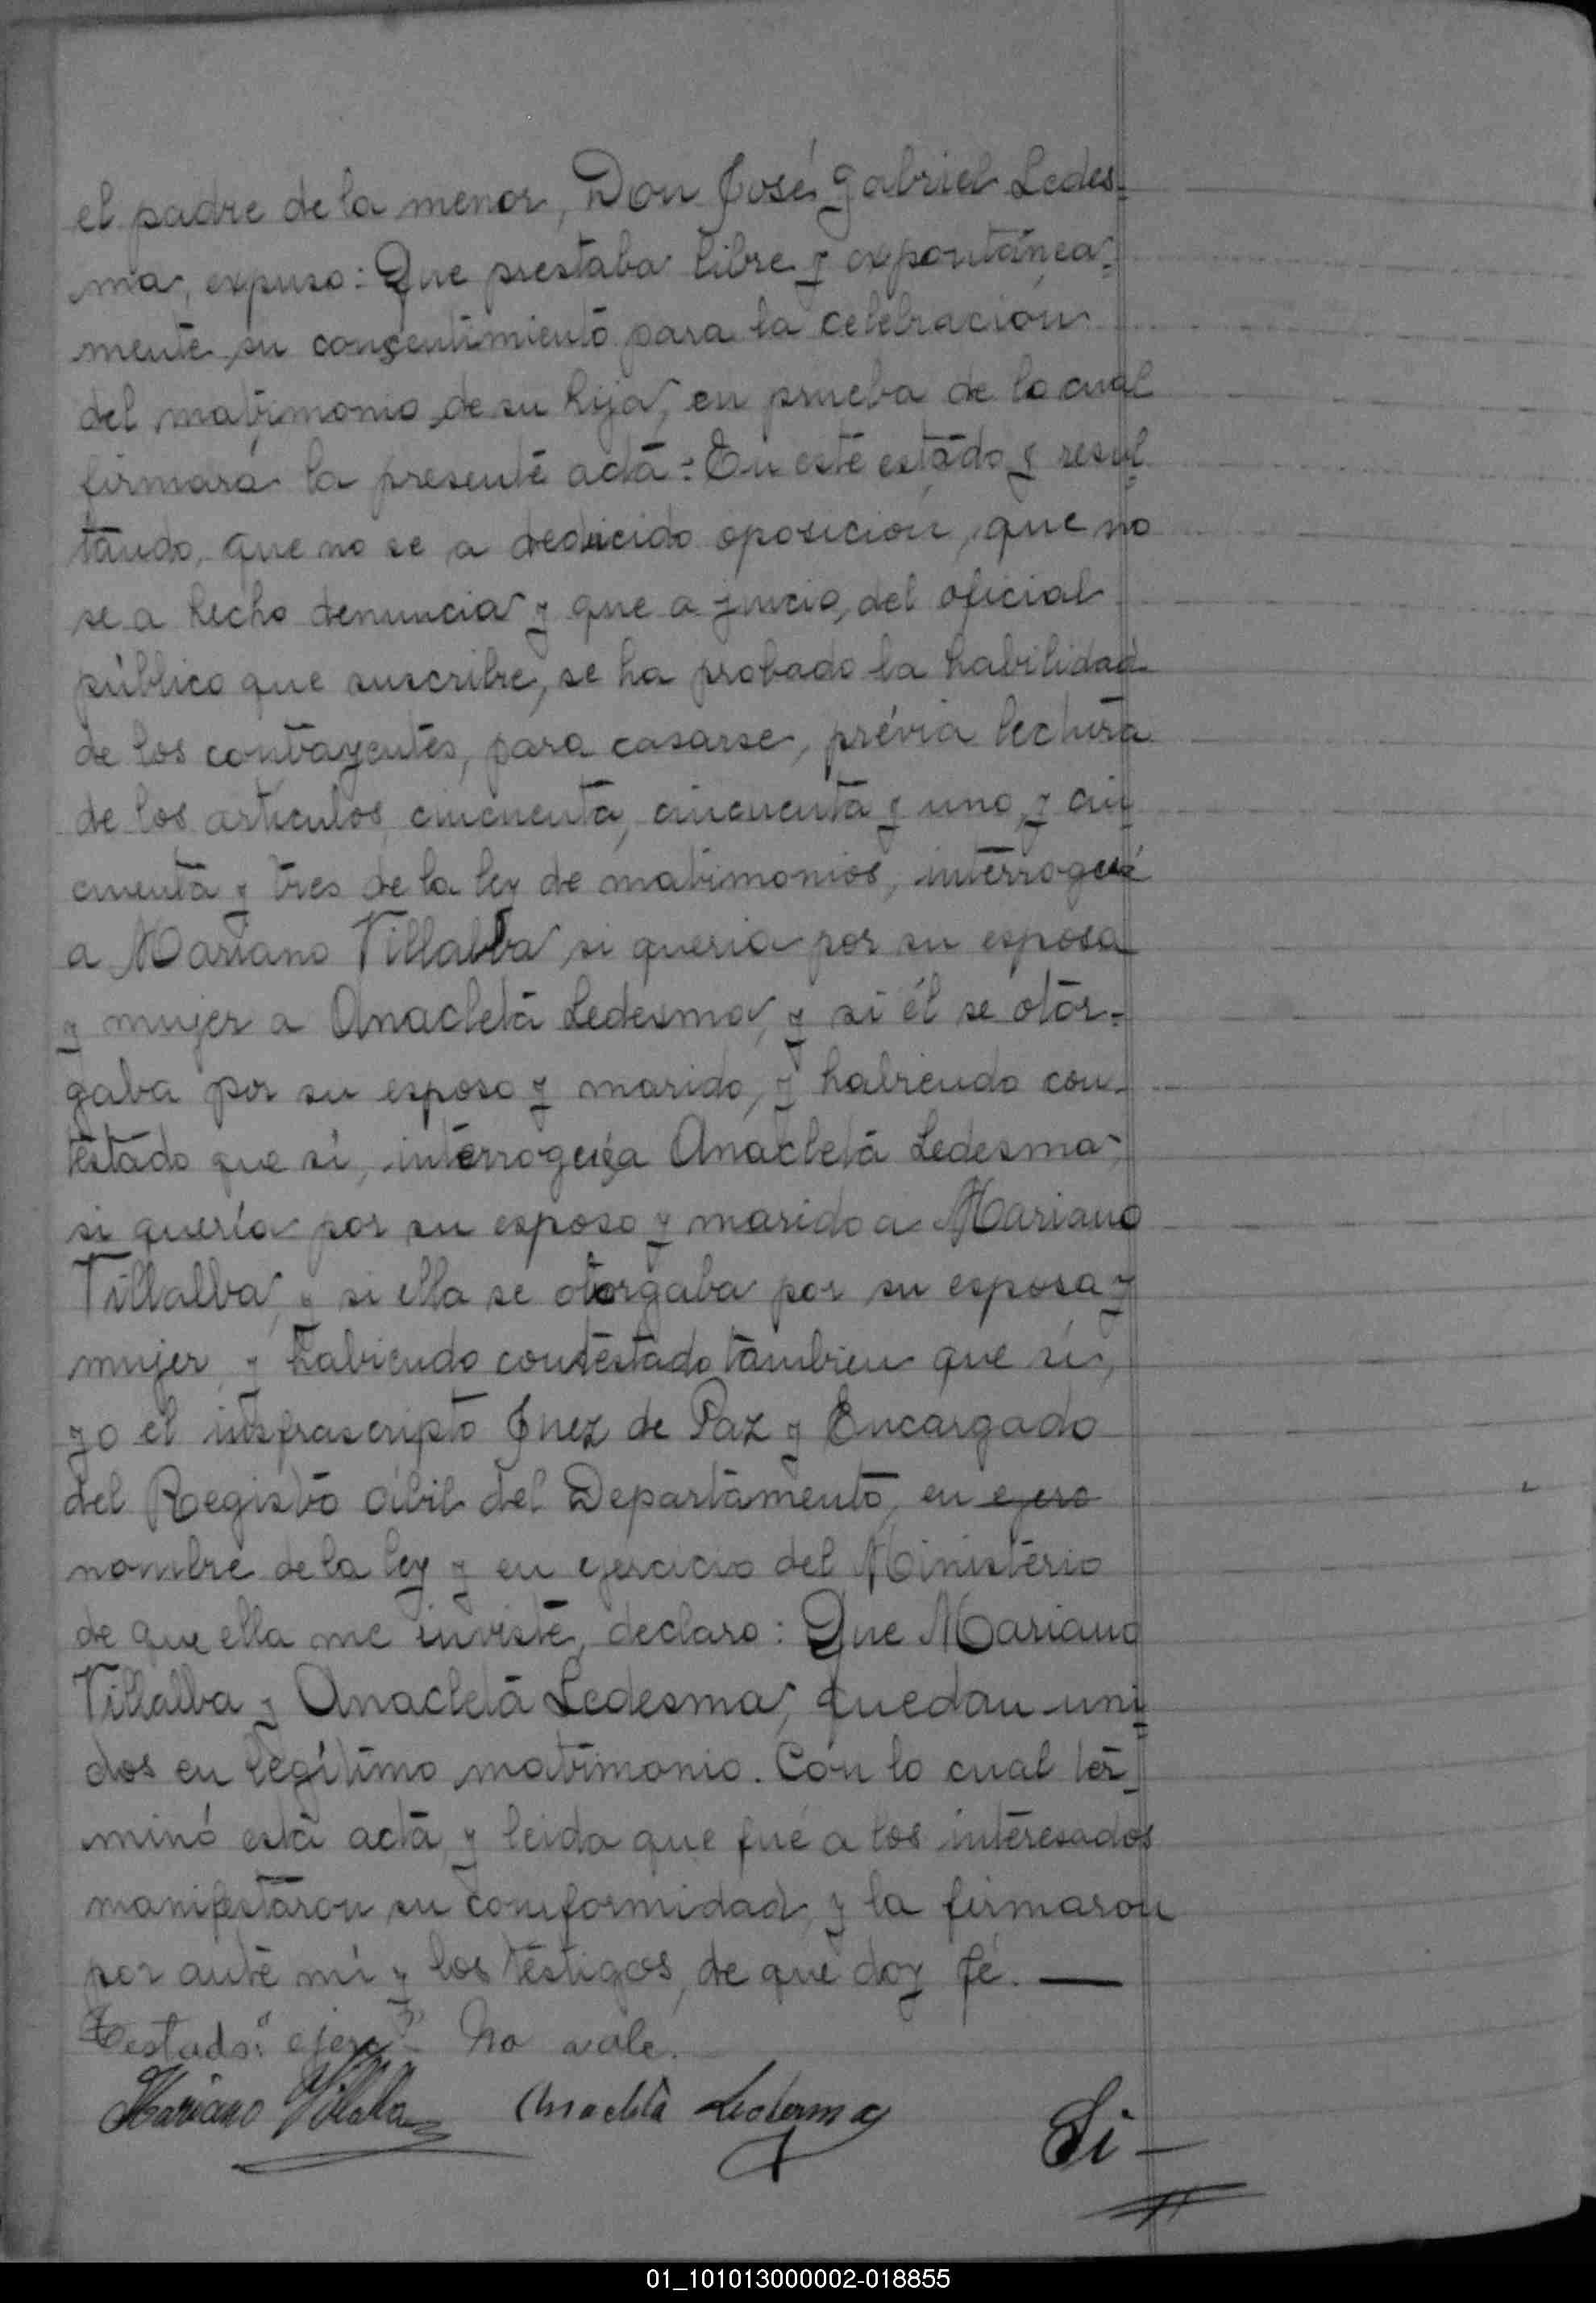 el padre de la menor, Don José Gabriel Ledes-
ma, expuso: Que prestaba libre y expontánea-
mente su consentimiento para la celebración
del matrimonio de su hija, en prueba de lo cual
firmará la presente acta: En este estado y resul-
tando, que no se a deducido oposición, que no
se a hecho denuncia y que a juicio, del oficial
público que suscribe, se ha probado la habilidad
de los contrayentes, para casarse, prévia lectura
de los artículos cincuenta, cincuenta y uno, y cin-
cuenta y tres de la ley de matrimonios, interrogué
a Mariano Villalba si queria por su esposa
y mujer a Anacleta Ledesma, y si él se otor-
gaba por su esposo y marido, y habiendo con-
testado que si, interrogué a Anacleta Ledesma,
si quería por su esposo y marido a Mariano
Villalba, y si ella se otorgaba por su esposa y
mujer, y habiendo contestado tambien que si,
yo el infrascripto Juez de Paz y Encargado
del Registro Civil del Departamento, en ejerc
nombre de la ley y en ejercicio del Ministerio
de que ella me inviste, declaro: Que Mariano
Villalba y Anacleta Ledesma, quedan uni-
dos en legítimo matrimonio. Con lo cual ter-
minó esta acta y leida que fué a los interesados
manifestaron su comformidad, y la firmaron
por ante mí y los testigos, de que doy fé. —
Testado: "ejerc" - No vale.
Mariano Villalba Anacleta Ledesma Si —
01_101013000002-018855